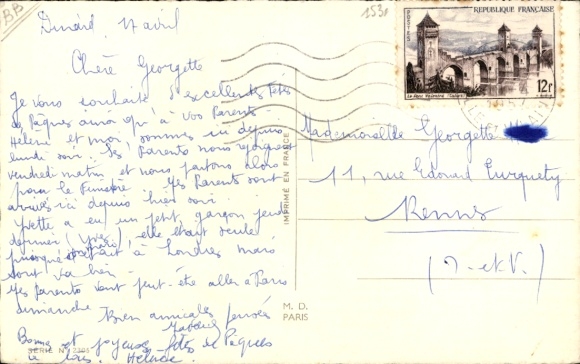 BB
1530
Dinard, 17 avril
Chère Georgette
Je vous souhaite d'excellentes fêtes
de Pâques ainsi qu'à vos Parents
Hélène et moi sommes ici depuis
lundi soir. Les Parents nous rejoignent
vendredi matin et nous partons alors
pour le Finistère. Mes Parents sont
arrivés ici depuis hier soir.
Yvette a eu un petit garçon jeudi
dernier (Yves), elle était seule
puisque était à Londres mais
tout va bien.
Mes Parents vont peut-être aller à Paris
dimanche.
Bien amicales pensées
Bonnes et joyeuses fêtes de Pâques
à tous. Hélène
SERIE N°
IMPRIMÉ EN FRANCE
M. D.
PARIS
POSTES
RÉPUBLIQUE FRANÇAISE
Le Pont Valentré (Cahors)
12F
Mademoiselle Georgette
11, rue Edouard Turquety
Rennes
(I.-et-V.)